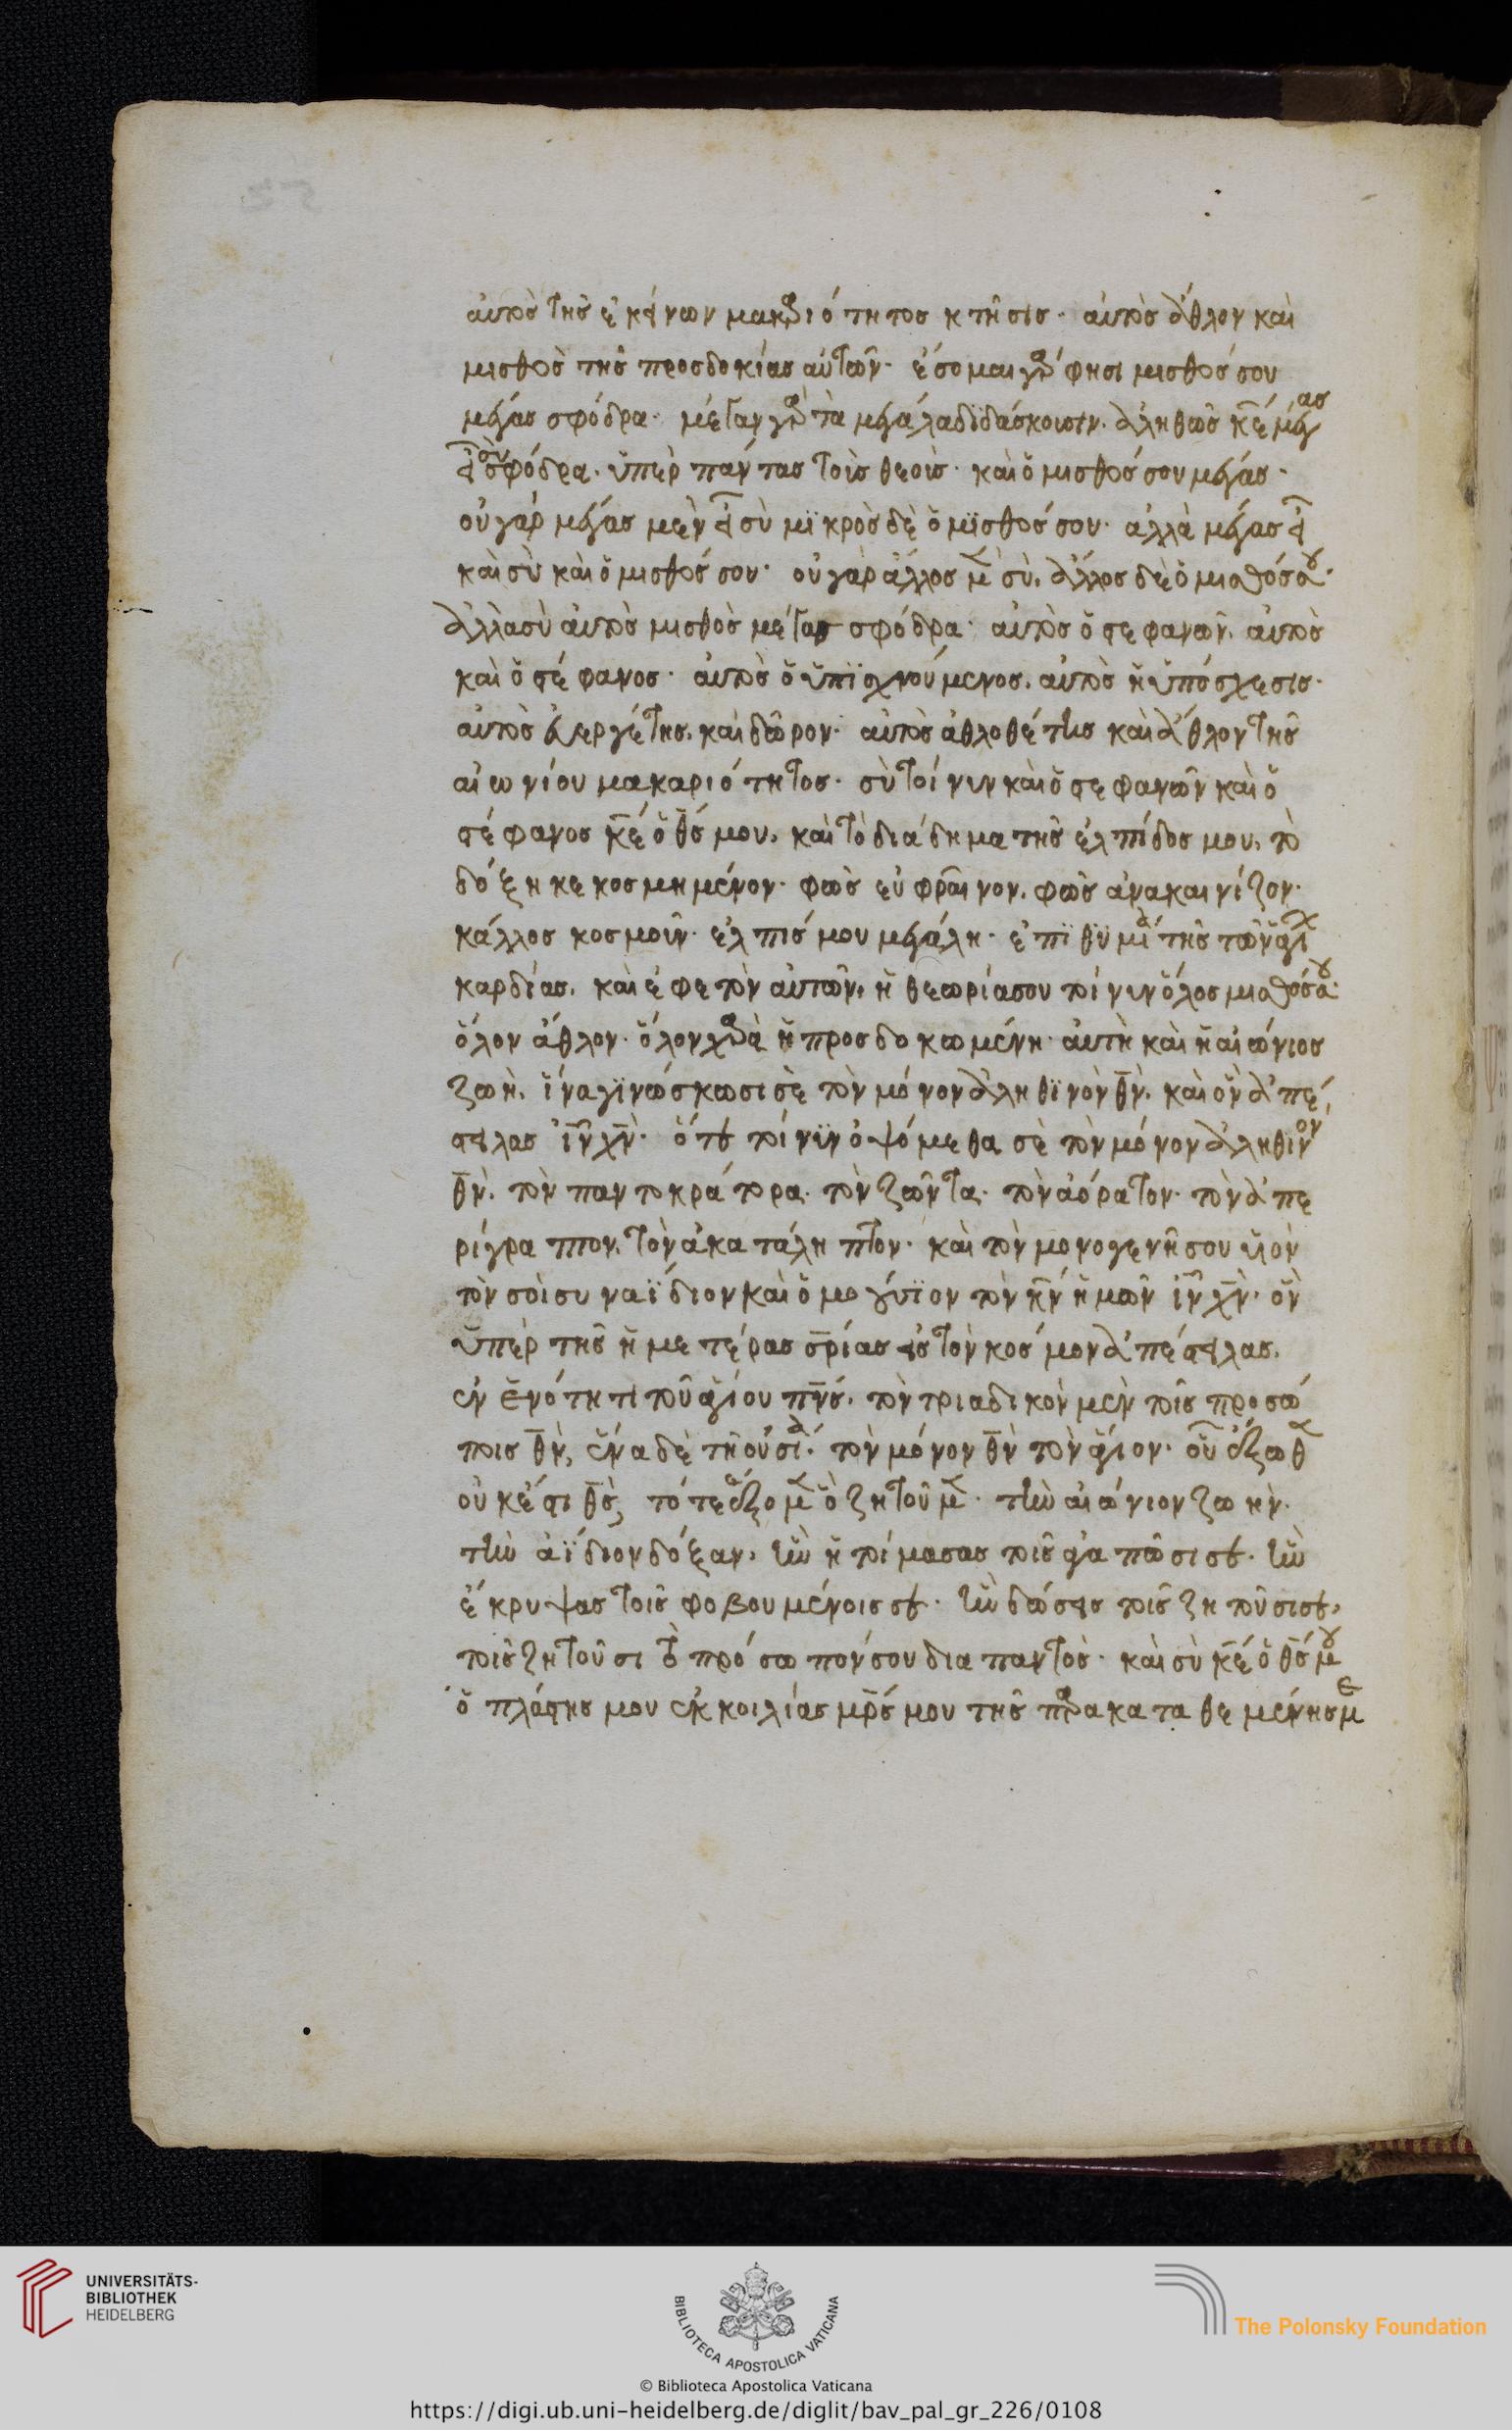 αὐτὸς τῆς ἐκείνων μακαριότητος κτῆσις· αὐτὸς ἆθλον καὶ
μισθὸς τῆς προσδοκίας αὐτῶν· ἔσομαι γάρ φησι μισθός σου
μέγας σφόδρα· μέγαν γὰρ τὰ μεγάλα διδάσκουσιν. ἀληθῶς κε μέγας
εἶ σὺ σφόδρα. ὑπὲρ πάντας τοὺς θεοὺς· καὶ ὁ μισθός σου μέγας·
οὐ γὰρ μέγας μὲν εἶ σὺ μϊκρὸς δὲ ὁ μϊσθός σου· ἀλλὰ μέγας εἶ
καὶ σὺ καὶ ὁ μισθός σου· οὐ γὰρ ἄλλος μὲν σὺ. ἄλλος δὲ ὁ μισθός σου·
ἀλλὰ σὺ αὐτὸς μισθὸς μέγας σφόδρα· αὐτὸς ὁ στεφανῶν. αὐτὸς
καὶ ὁ στέφανος· αὐτὸς ὁ ὑπϊσχνούμενος. αὐτὸς ἡ ὑπόσχεσις·
αὐτὸς εὐεργέτης. καὶ δῶρον· αὐτὸς ἀθλοθέτης καὶ ἆθλον τῆς
αἰωνίου μακαριότητος· σὺ τοίνυν καὶ ὁ στεφανῶν καὶ ὁ
στέφανος κε ὁ θς μου, καὶ τὸ διάδημα τῆς ἐλπίδος μου, τὸ
δόξη κεκοσμημένον· φῶς εὐφραῖνον. φῶς ἀνακαινίζον·
κάλλος κοσμοῦν· ἐλπίς μου μεγάλη· ἐπϊθϋμία τῆς τῶν ἁγί
καρδίας. καὶ ἐφετὸν αὐτῶν, ἡ θεωρία σου τοίνυν ὅλος μισθός σου·
ὅλον ἆθλον· ὅλον χαρὰ ἡ προσδοκωμένη· αὐτὴ καὶ ἡ αἰώνιος
ζωὴ. ἵνα γϊνώσκωσι σὲ τὸν μόνον ἀληθϊνὸν θν. καὶ ὃν ἀπέ
στειλας ιν χν· ὅτε τοίνϊν ὀψόμεθα σὲ τὸν μόνον ἀληθινὸν
θν. τὸν παντοκράτορα. τὸν ζῶντα. τὸν ἀόρατον. τὸν ἀπε
ρίγραπτον. τὸν ἀκατάληπτον· καὶ τὸν μονογενῆ σου υἱὸν
τὸν σοὶ συναΐδιον καὶ ὁμογένϊον τὸν κν ἡμῶν ιν χν· ὃν
ὑπὲρ τῆς ἡμετέρας σριας εἰς τὸν κόσμον ἀπέστειλας.
ἐν ἑνότητι τοῦ ἁγίου πνς. τὸν τριαδικὸν μὲν τοῖς προσώ
ποις θν, ἕνα δὲ τῆ οὐσία. τὸν μόνον θν τὸν ἅγιον· οὗ ἔξωθεν
οὐκ ἔστι θς, τότε ἕξομεν ὃ ζητοῦμεν· τὴν αἰώνιον ζωὴν.
τὴν ἀΐδιον δόξαν, ἣν ἡτοίμασας τοῖς ἀγαπῶσι σε. ἣν
ἔκρυψας τοῖς φοβουμένοις σε· ἣν δώσεις τοῖς ζητοῦσι σε,
τοῖς ζητοῦσι τὸ πρόσωπόν σου δια παντὸς· καὶ σὺ κε ὁ θς μου
ὁ πλάστης μου ἐκ κοιλίας μρς μου τῆς παρακαταθεμένης με
UNIVERSITÄTS-
BIBLIOTHEK
HEIDELBERG
BIBLIOTECA APOSTOLICA VATICANA
The Polonsky Foundation
© Biblioteca Apostolica Vaticana
https://digi.ub.uni-heidelberg.de/diglit/bav_pal_gr_226/0108